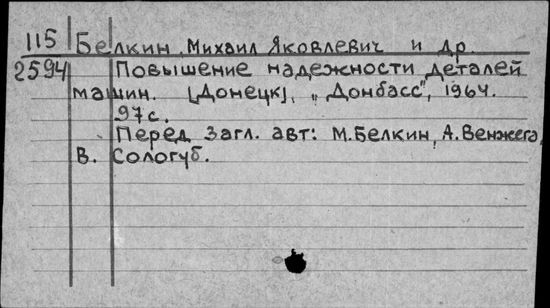 115 Белкин Михаил Яковлевич и др.
2594 Повышение надежности деталей
машин. [Донецк], „Донбасс", 1964.
97с.
Перед загл. авт: М.Белкин, А.Венжега,
В. Сологуб.